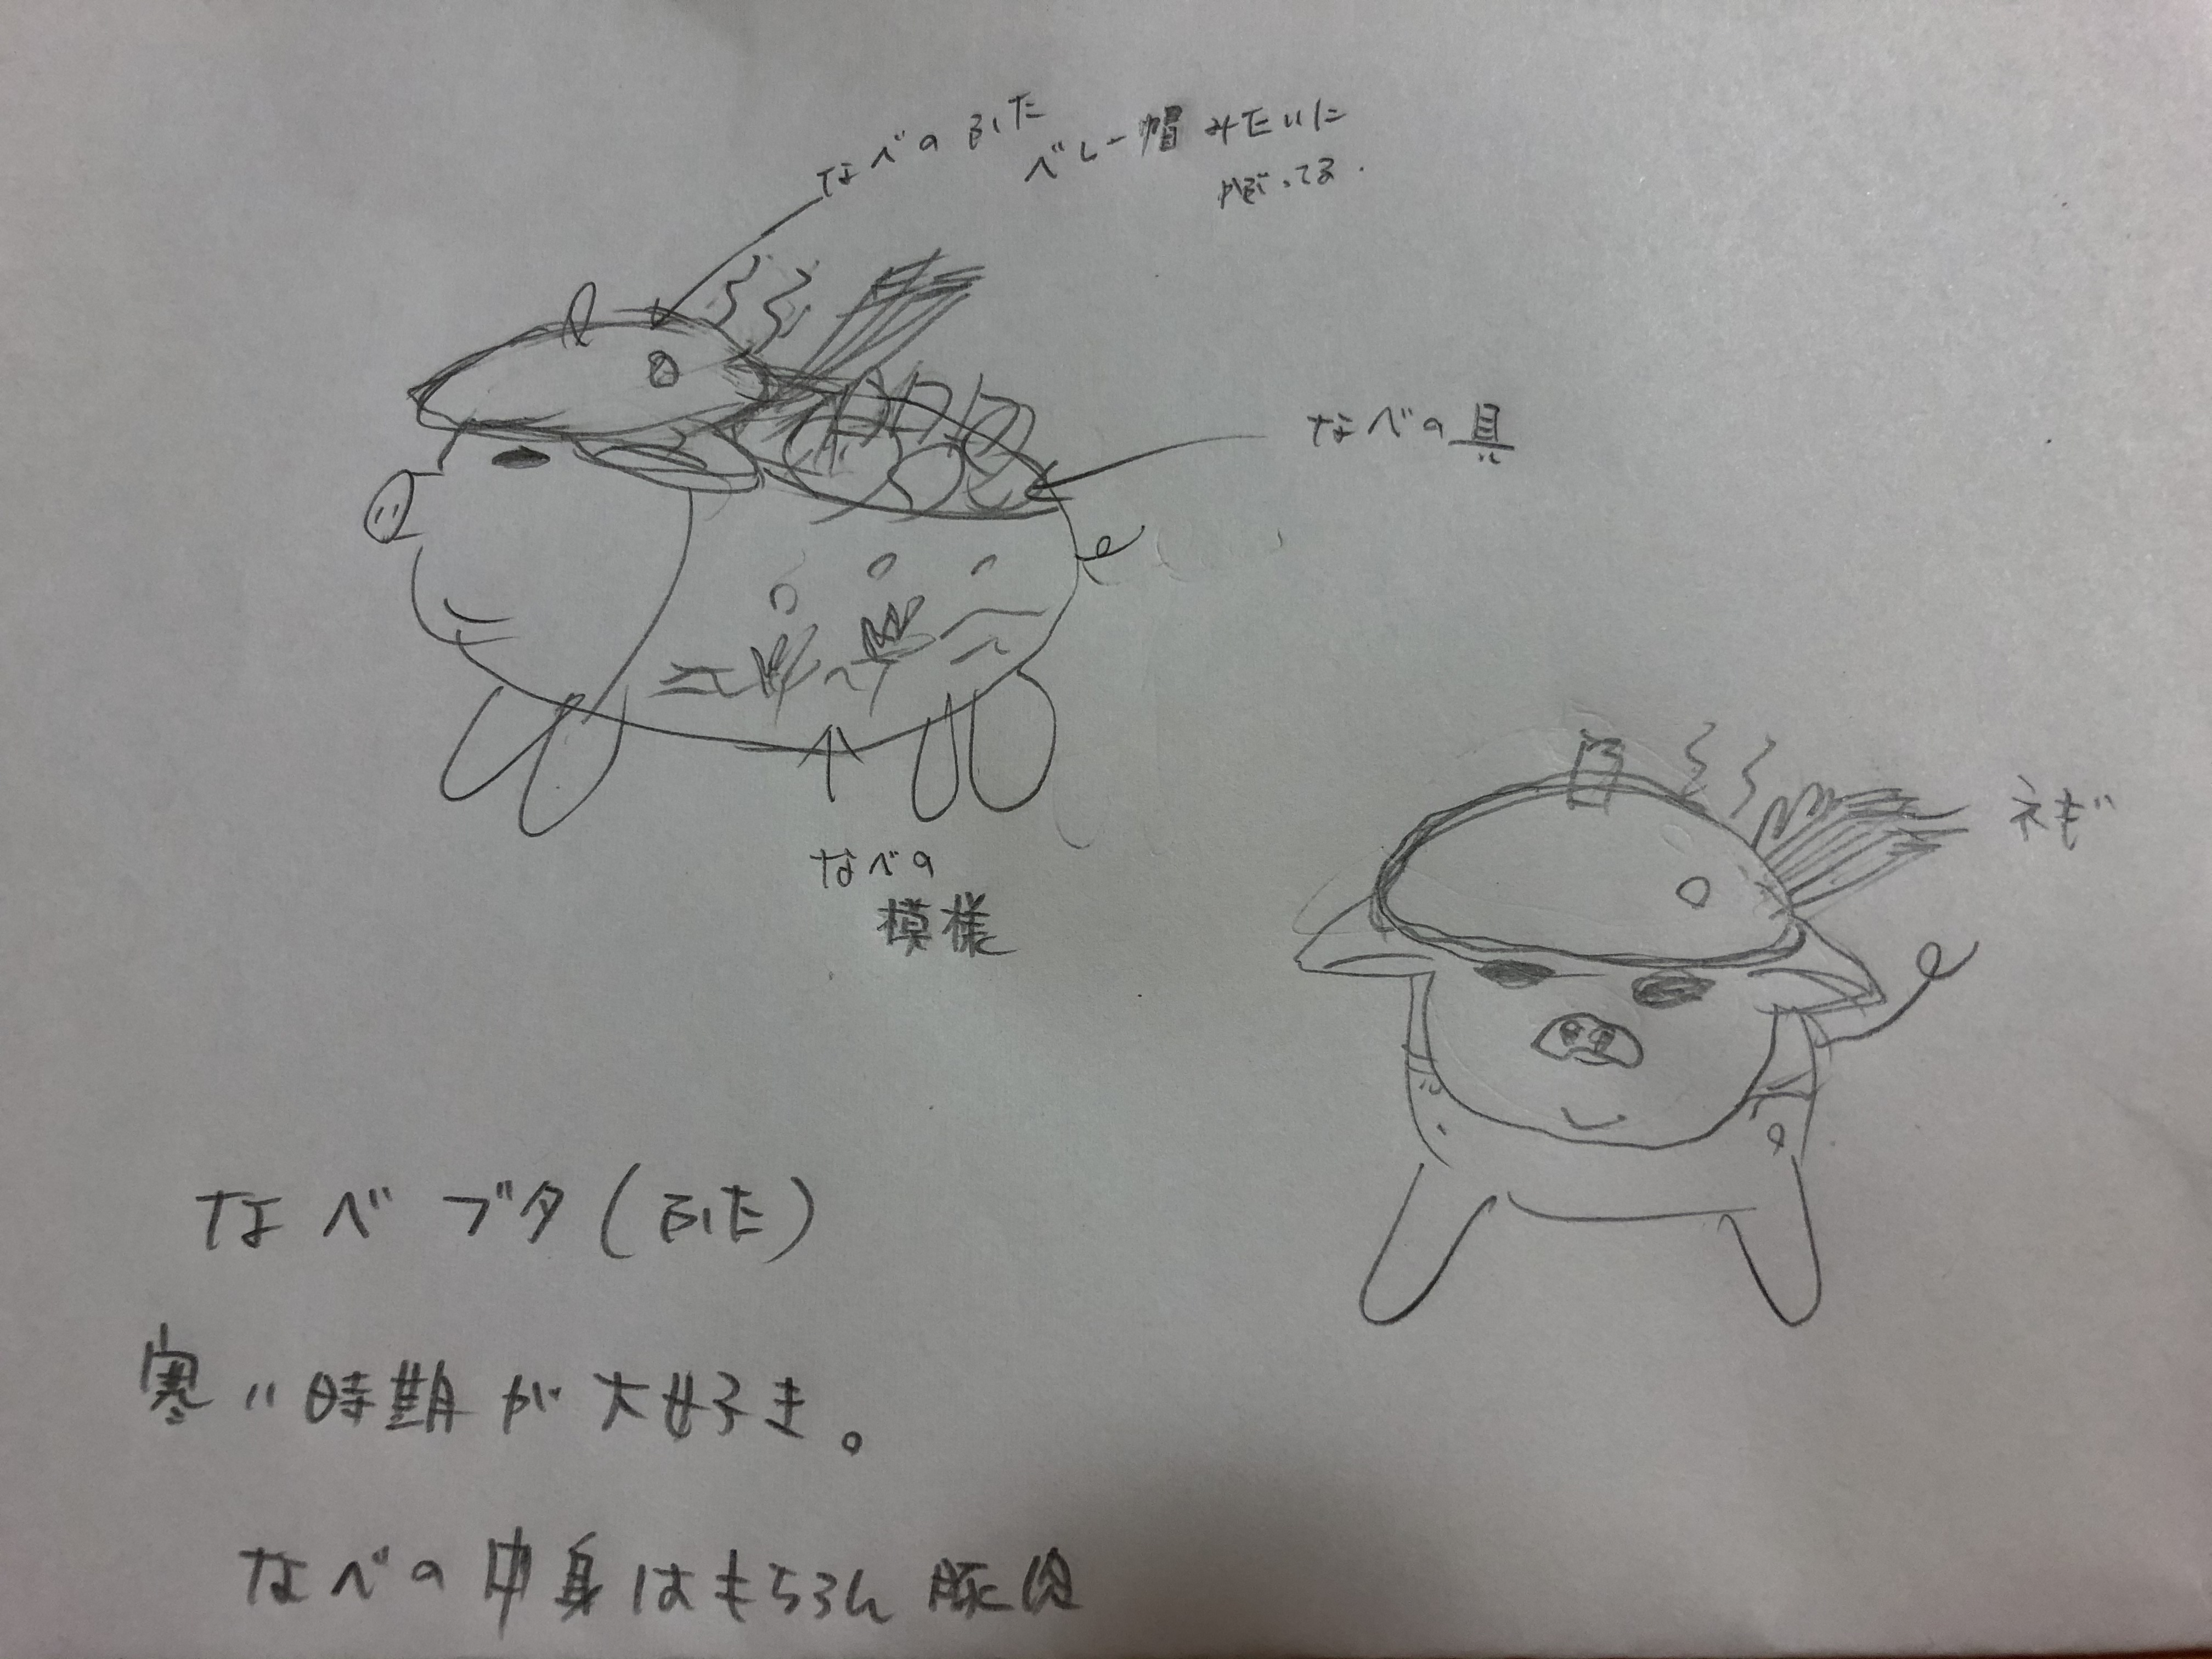 なべのふた
ベレー帽みたいに
かぶってる.
なべの具
なべの
模様
ネギ
なべブタ(ふた)
寒い時期が大好き。
なべの中身はもちろん豚肉